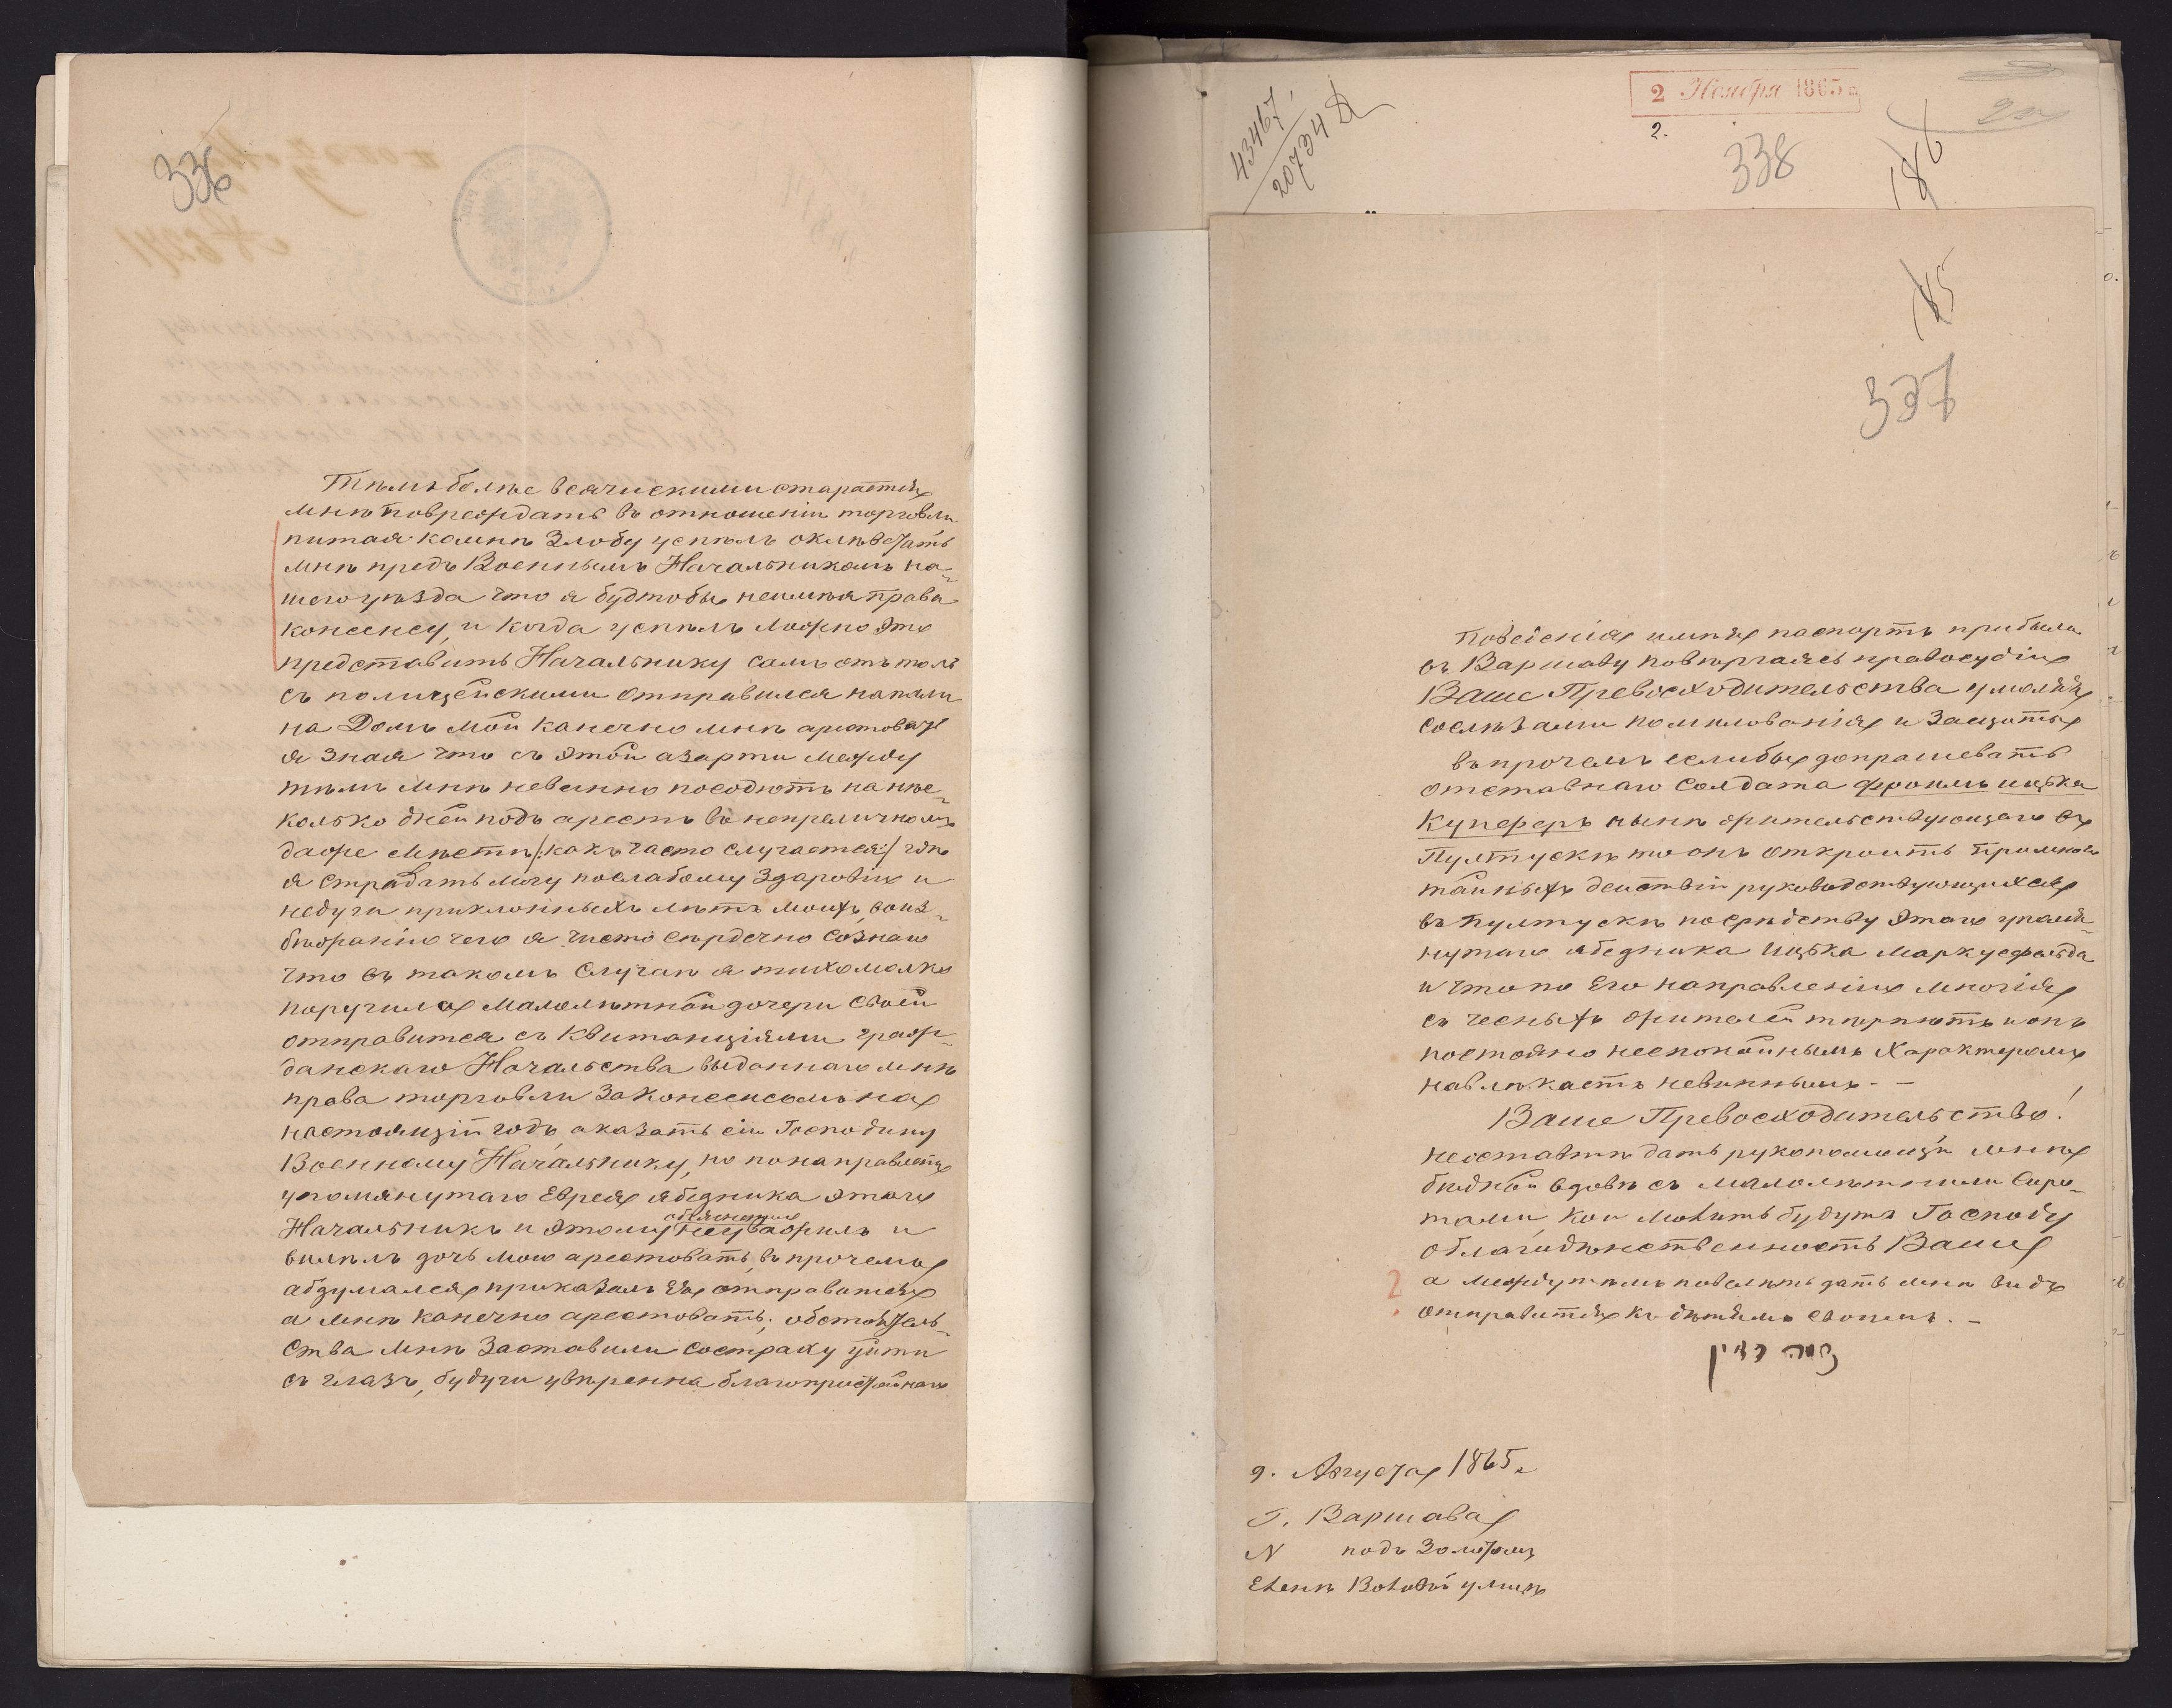 336
Тѣмъ болѣе всячискими старатся
мнѣ повреждать въ отношеніи торговли
питая комнѣ Злобу успѣлъ оклѣветать
мнѣ предъ Военнымъ Начальникомъ на-
шего уѣзда что я будтобы неимѣя права
консенсу, и когда успѣлъ ложно это
представить Начальнику самъ отъ толь
съ полицейскими отправился напали
на Домъ мой канечно мнѣ арестовать
я Зная что съ этой азарти между
тѣмъ мнѣ невинно посодютъ на нѣс-
колько дней подъ арестъ въ непреличномъ
даже мѣсти /:какъ часто случается:/ гдѣ
я страдать могу послабому Здаровію и
недуги приклонныхъ лѣтъ моихъ, воиз-
бѣораніе чего я чисто сѣрдечно Сознаю
что въ такомъ Случаѣ я тихомолко
поручила малолѣтной дочери своей
отправится съ Квитанціями граж-
данскаго Начальства выданнаго мнѣ
права торговли Законсенсомъ на
настоящій годъ, аказать сіи Господину
Военному Начальнику, но понаправлѣнію
упомянутаго Еврея ябедника этаго
объясненіе
Начальникъ и этому неуважилъ и
вилѣлъ дочь мою арестовать, въ прочемъ
абдумался приказалъ Ея отправится
а мнѣ канечно арестовать; обстоятель-
ства мнѣ Заставили состраху уйти
съ глазъ, будучи увѣренна благопристойнаго
43467
20734
2 Ноября 1865
2.
338
186
185
337
Поведенія имѣя паспортъ прибыла
въ Варшаву повѣргаясь правосудію
Ваше Превосходительства умоляя
сослѣзами помилованія и Защиты
въ прочемъ еслибы допрашевать
отставнаго Солдата Фроимъ ицка
Куперъ нынѣ жительствующаго въ
Пултускѣ то онъ откроитъ примного
тайныхъ действій руководствующихся
въ Пултускѣ посрѣдству этаго упомя-
нутаго ябедника Ицка Маркусфельда
и что по Его направленію многія
съ чесныхъ жителей тѣрпютъ и онъ
постоянно неспокойнымъ Характеромъ
навлѣкаетъ невиннымъ. –
Ваше Превосходительство!
неоставти дать рукопомощи мнѣ
бѣдной вдовѣ съ малолѣтними Сиро-
тами, кои молить будутъ Господу
облагодѣнственность Ваше
а междутѣмъ повѣлѣть дать мнѣ видъ
отправится къ дѣтямъ своимъ. –
9. Августа 1865 г.
Г. Варшава
N подъ Золотымъ